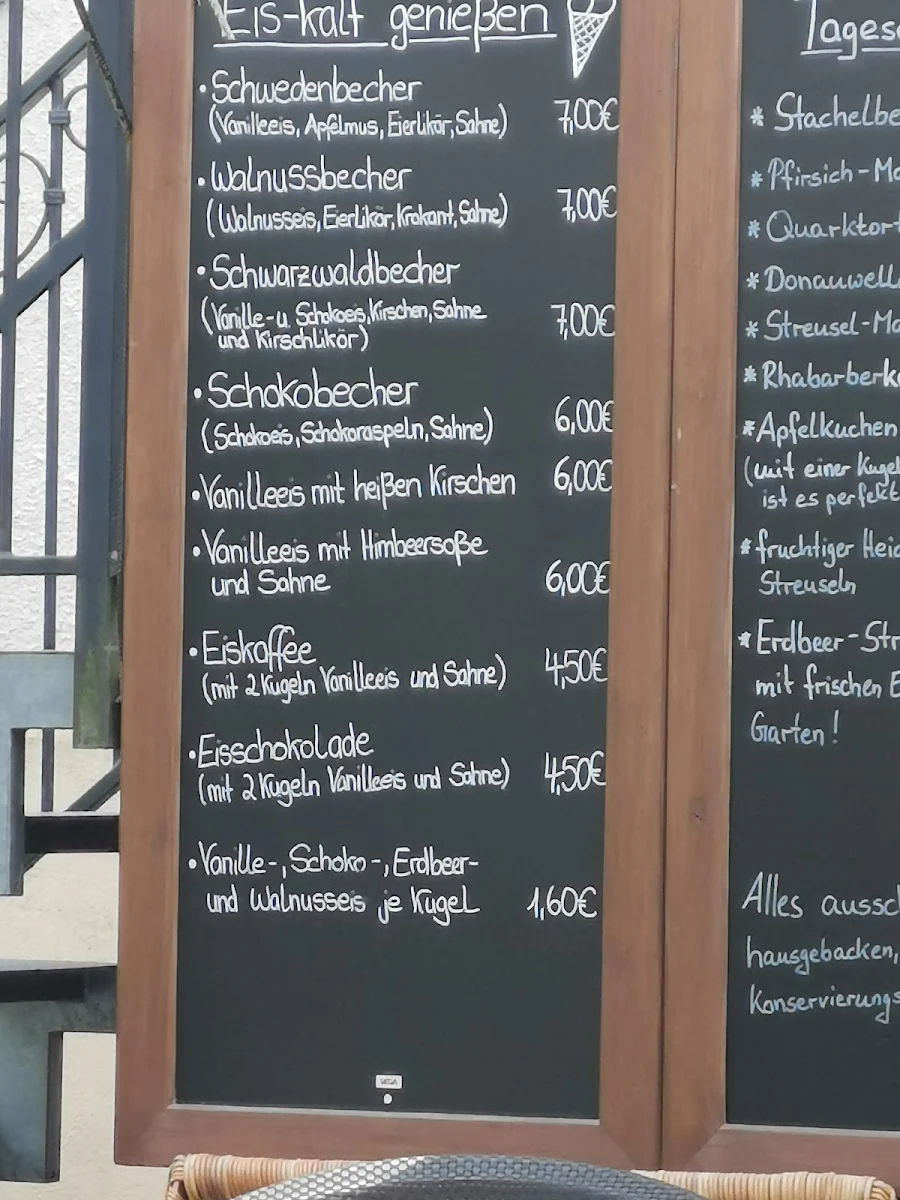 Eis-kalt genießen
• Schwedenbecher
(Vanilleeis, Apfelmus, Eierlikör, Sahne) 7,00€
• Walnussbecher
(Walnusseis, Eierlikör, Krokant, Sahne) 7,00€
• Schwarzwaldbecher
(Vanille- u. Schokoeis, Kirschen, Sahne 7,00€
und Kirschlikör)
• Schokobecher
(Schokoeis, Schokoraspeln, Sahne) 6,00€
• Vanilleeis mit heißen Kirschen 6,00€
• Vanilleeis mit Himbeersoße
und Sahne 6,00€
• Eiskaffee
(mit 2 Kugeln Vanilleeis und Sahne) 4,50€
• Eisschokolade
(mit 2 Kugeln Vanilleeis und Sahne) 4,50€
• Vanille-, Schoko-, Erdbeer-
und Walnusseis je Kugel 1,60€
Tages
* Stachelbe
* Pfirsich-Ma
* Quarktort
* Donauwell
* Streusel-Mo
* Rhabarberk
* Apfelkuchen
(mit einer Kugel
ist es perfekt
* fruchtiger Heid
Streuseln
* Erdbeer-Str
mit frischen E
Garten!
Alles aussc
hausgebacken,
Konservierungs